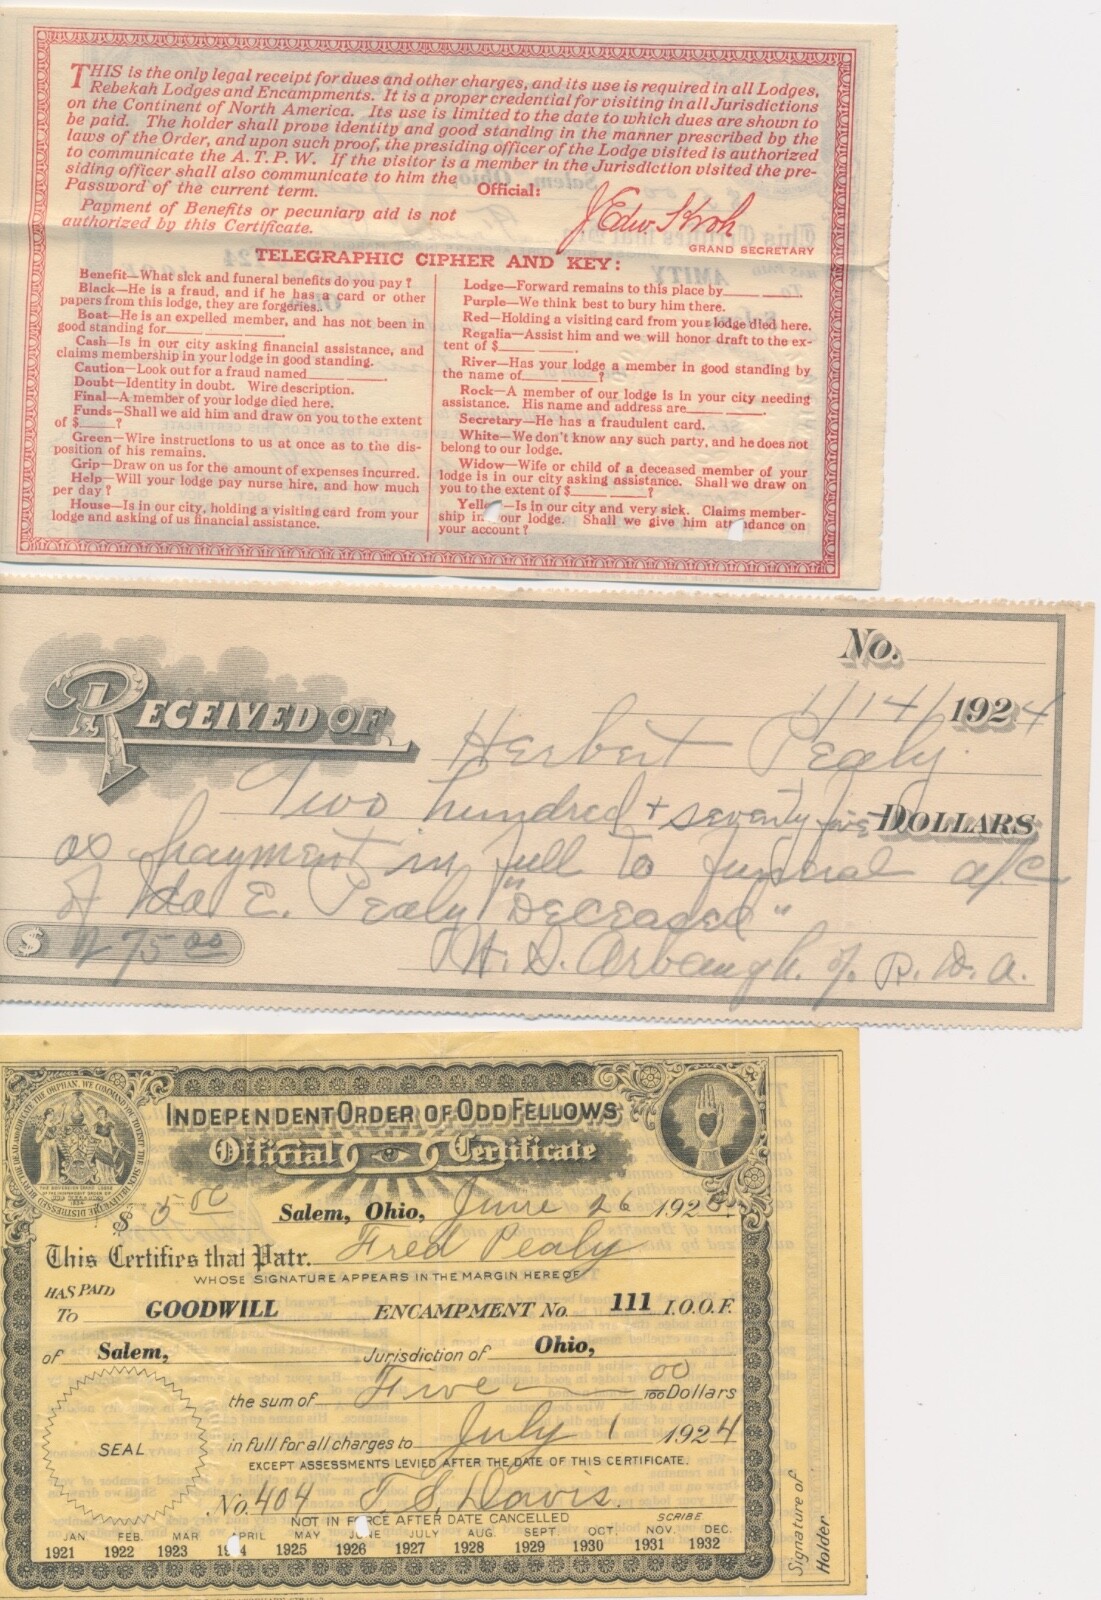 THIS is the only legal receipt for dues and other charges, and its use is required in all Lodges,
Rebekah Lodges and Encampments. It is a proper credential for visiting in all Jurisdictions
on the Continent of North America. Its use is limited to the date to which dues are shown to
be paid. The holder shall prove identity and good standing in the manner prescribed by the
laws of the Order, and upon such proof, the presiding officer of the Lodge visited is authorized
to communicate the A. T. P. W. If the visitor is a member in the Jurisdiction visited the pre-
siding officer shall also communicate to him the
Password of the current term.
Official:
Payment of Benefits or pecuniary aid is not
authorized by this Certificate.
J. Edw Kroh
GRAND SECRETARY
TELEGRAPHIC CIPHER AND KEY:
Benefit—What sick and funeral benefits do you pay?
Black—He is a fraud, and if he has a card or other
papers from this lodge, they are forgeries.
Boat—He is an expelled member, and has not been in
good standing for
Cash—Is in our city asking financial assistance, and
claims membership in your lodge in good standing.
Caution—Look out for a fraud named
Doubt—Identity in doubt. Wire description.
Final—A member of your lodge died here.
Funds—Shall we aid him and draw on you to the extent
of $____?
Green—Wire instructions to us at once as to the dis-
position of his remains.
Grip—Draw on us for the amount of expenses incurred.
Help—Will your lodge pay nurse hire, and how much
per day?
House—Is in our city, holding a visiting card from your
lodge and asking of us financial assistance.
Lodge—Forward remains to this place by
Purple—We think best to bury him there.
Red—Holding a visiting card from your lodge died here.
Regalia—Assist him and we will honor draft to the ex-
tent of $____ ____.
River—Has your lodge a member in good standing by
the name of____ ____?
Rock—A member of our lodge is in your city needing
assistance. His name and address are____ ____.
Secretary—He has a fraudulent card.
White—We don't know any such party, and he does not
belong to our lodge.
Widow—Wife or child of a deceased member of your
lodge is in our city asking assistance. Shall we draw on
you to the extent of $____ ____?
Yellow—Is in our city and very sick. Claims member-
ship in your lodge. Shall we give him attendance on
your account?
No.
1/14/ 1924
RECEIVED OF Herbert Pealy
Two hundred + seventy five DOLLARS
as payment in full to funeral a/c
of Ida E. Pealy "Deceased"
$ 275.00
H. D. Arbaugh of R. D. A.
INDEPENDENT ORDER OF ODD FELLOWS
Official Certificate
WE COMMAND YOU TO VISIT THE SICK, RELIEVE THE DISTRESSED, BURY THE DEAD AND EDUCATE THE ORPHAN.
$ 5.00 Salem, Ohio, June 26 1923
This Certifies that Patr. Fred Pealy
WHOSE SIGNATURE APPEARS IN THE MARGIN HEREOF
HAS PAID
To GOODWILL ENCAMPMENT No. 111 I.O.O.F.
of Salem, Jurisdiction of Ohio,
the sum of Five 00/100 Dollars
in full for all charges to July 1 1924
EXCEPT ASSESSMENTS LEVIED AFTER THE DATE OF THIS CERTIFICATE.
SEAL
No. 404 T. S. Davis.
NOT IN FORCE AFTER DATE CANCELLED SCRIBE
JAN FEB. MAR APRIL MAY JUNE JULY AUG. SEPT. OCT. NOV. DEC.
1921 1922 1923 1924 1925 1926 1927 1928 1929 1930 1931 1932
Signature of
Holder